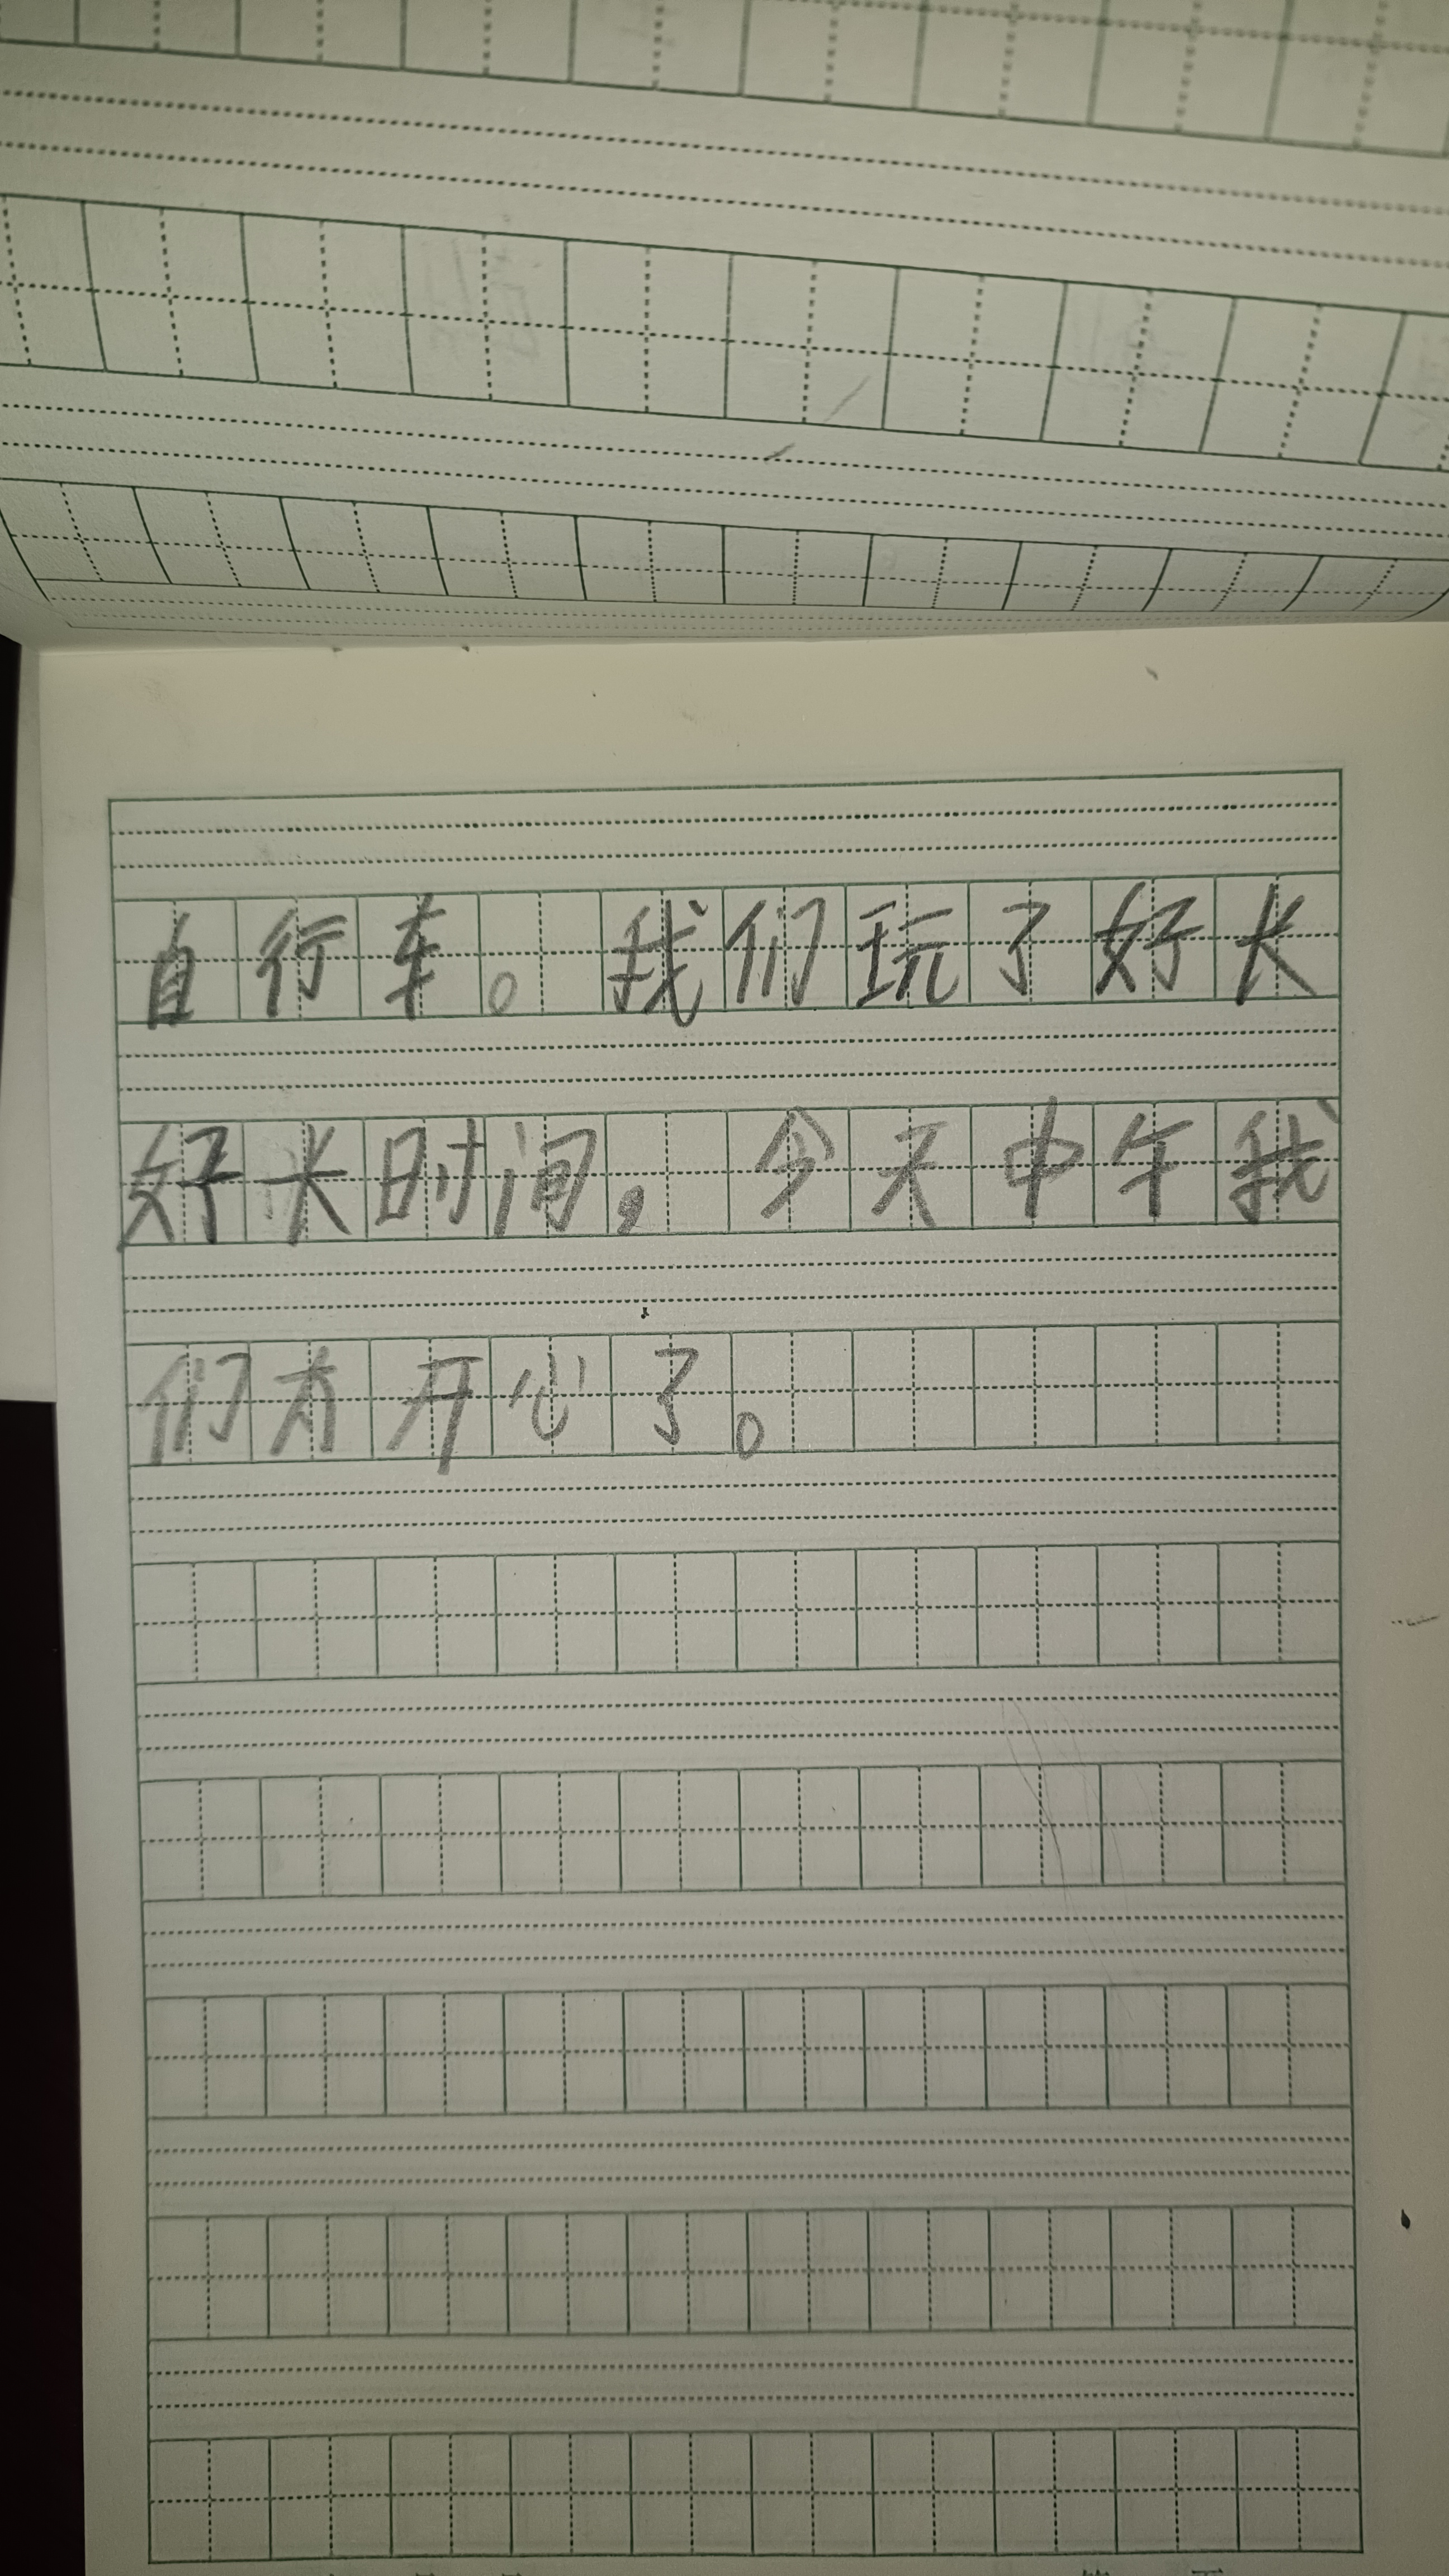 自行车。我们玩了好长
好长时间，今天中午我
们太开心了。